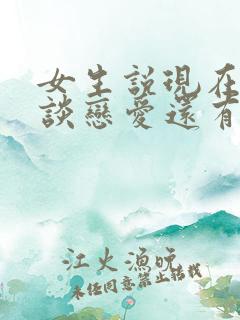 女生說現在
談戀愛還有
江火漁晚
未任同意禁止轉載